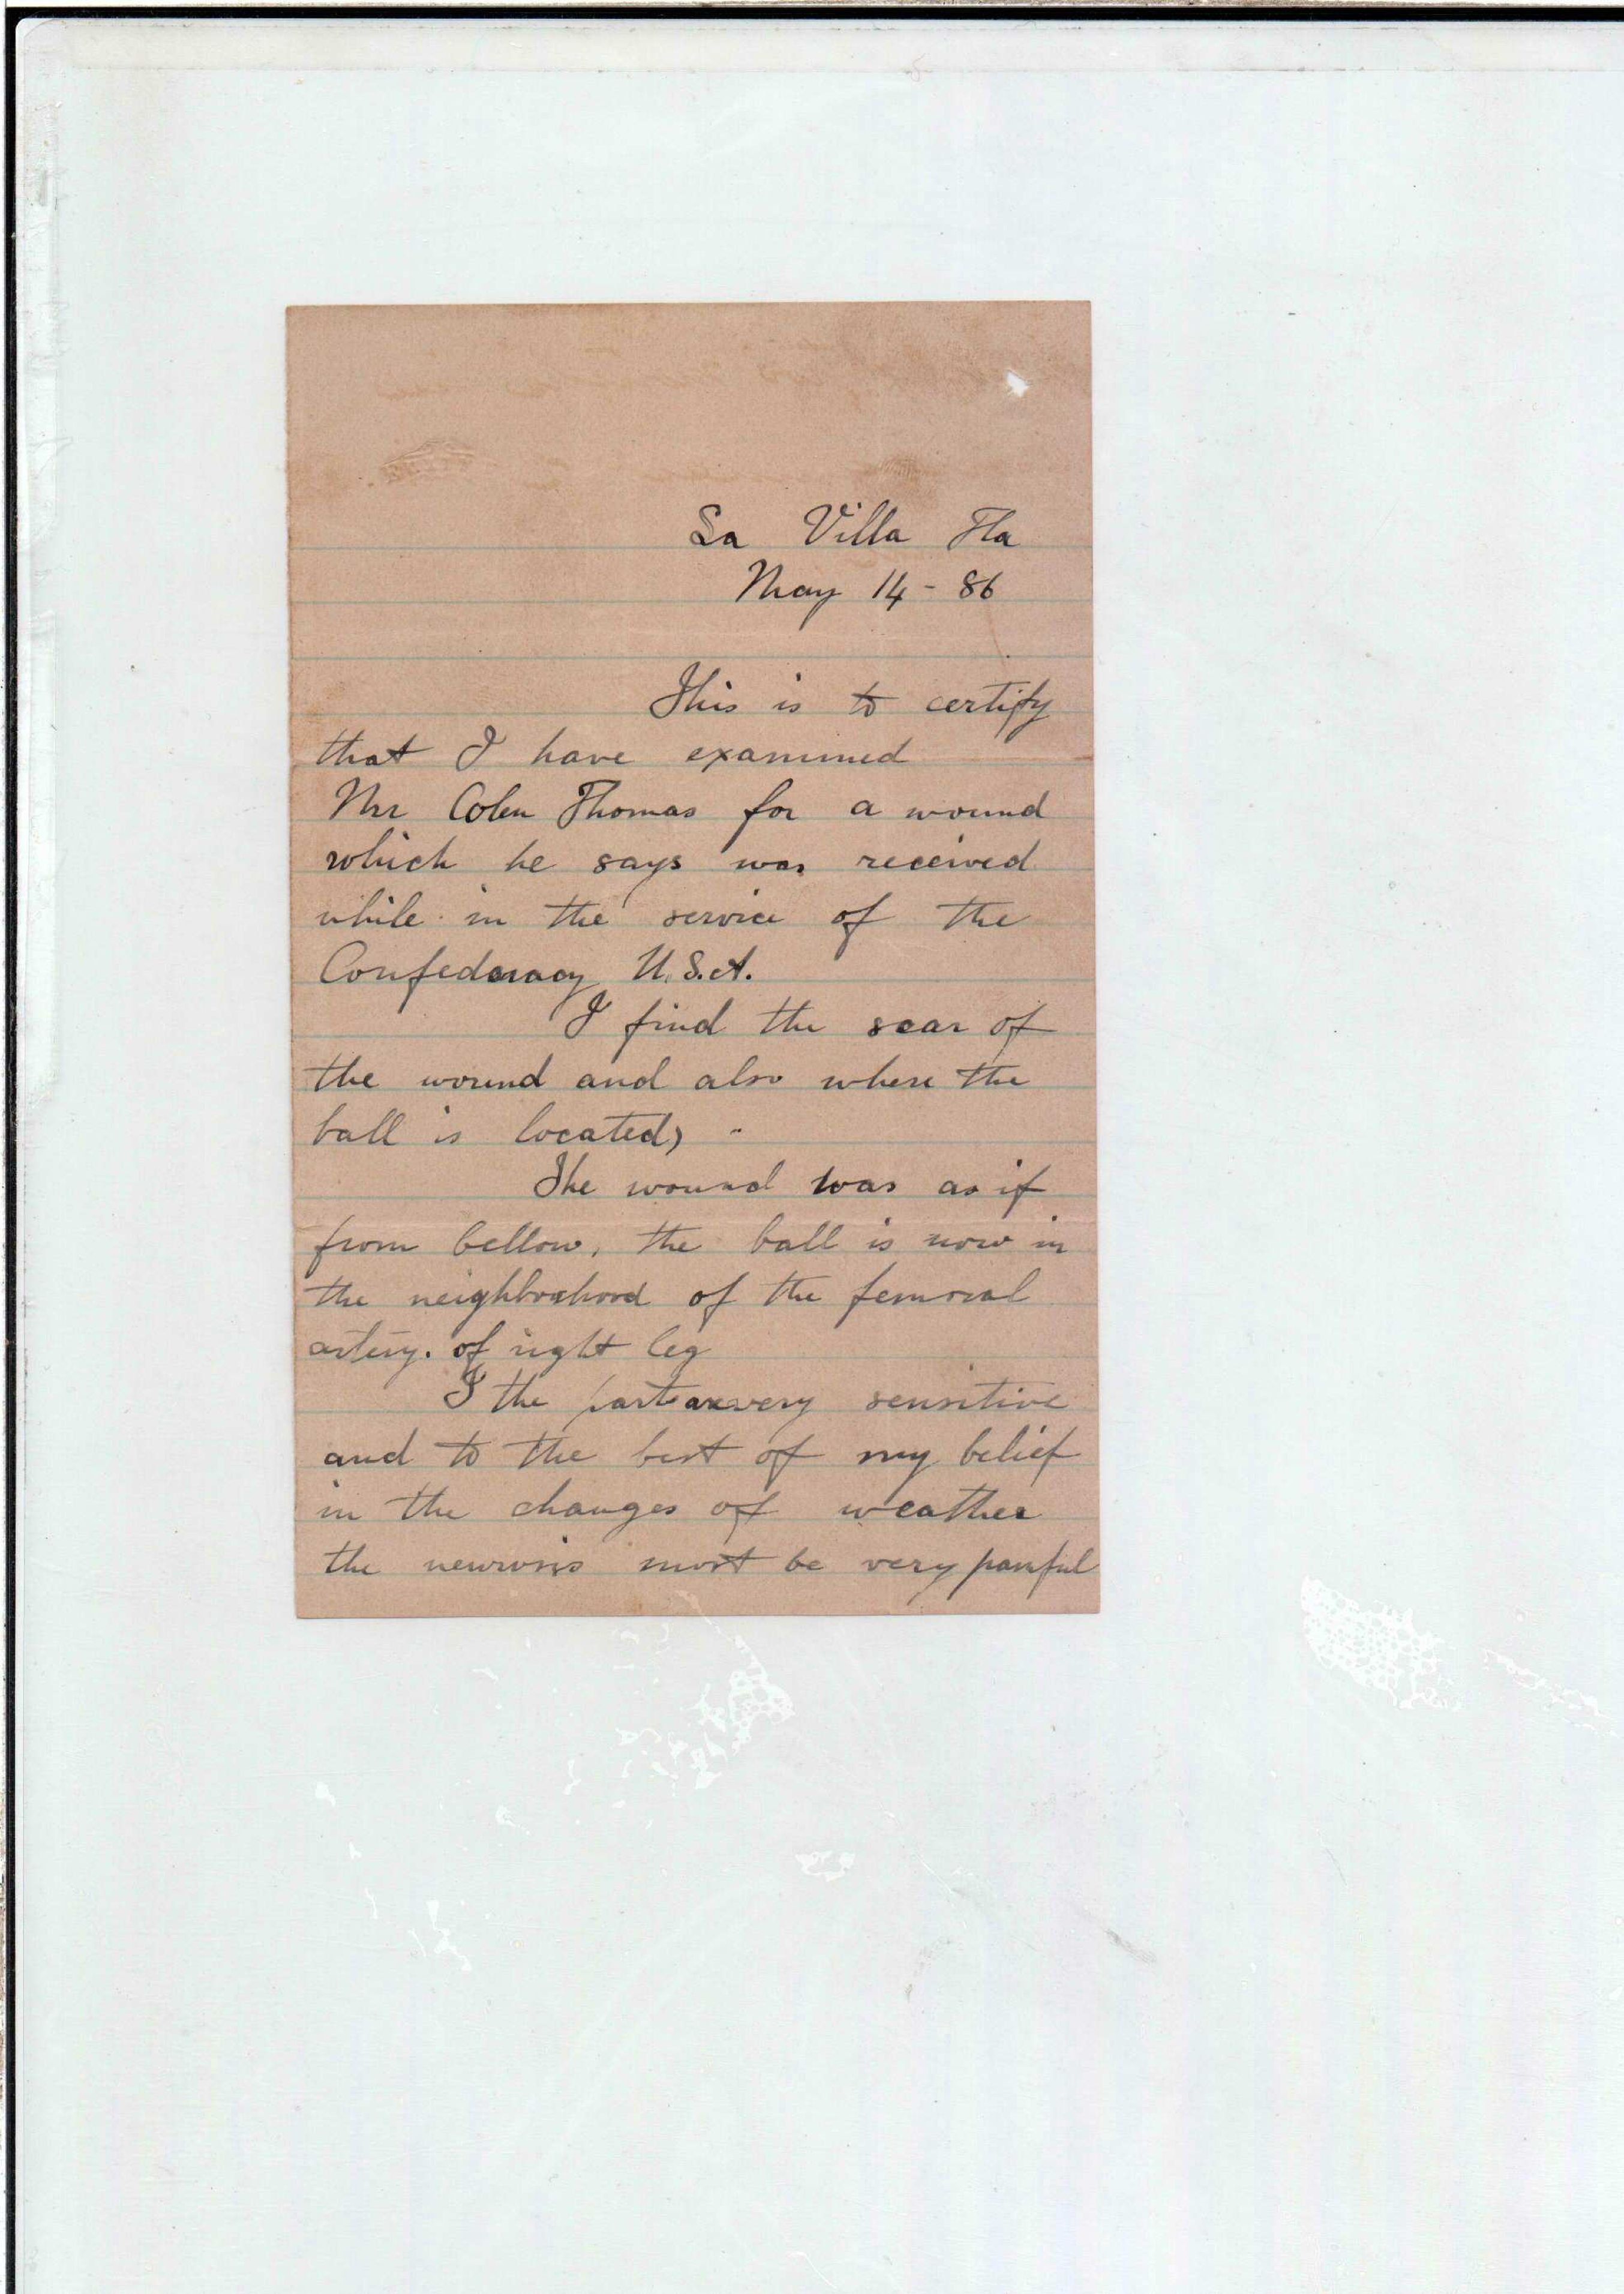 La Villa Fla
May 14 - 86
This is to certify
that I have examined
Mr Colen Thomas for a wound
which he says was received
while in the service of the
Confederacy U.S.A.
I find the scar of
the wound and also where the
ball is located, -
The wound was as if
from bellow, the ball is now in
the neighborhood of the femoral
artery. of right leg
I the parts are very sensitive
and to the best of my belief
in the changes of weather
the neurosis most be very painful